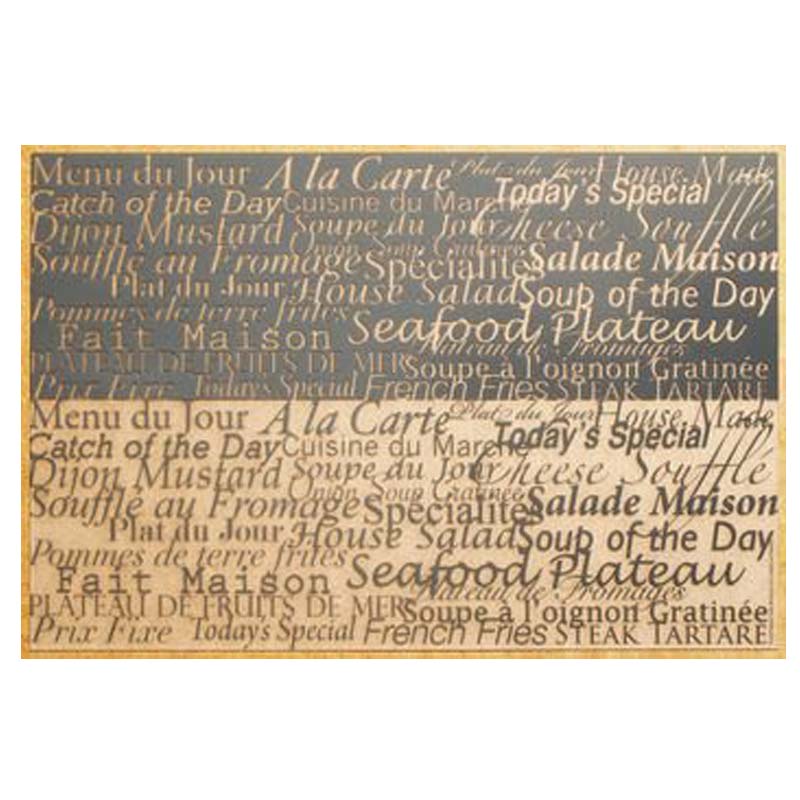 Menu du Jour A la Carte Plat du Jour House Made
Today's Special
Catch of the Day Cuisine du Marche
Dijon Mustard Soupe du Jour Cheese Soufflé
Onion Soup Gratinée
Soufflé au Fromage Spécialités Salade Maison
Plat du Jour House Salad Soup of the Day
Pommes de terre frites
Fait Maison Seafood Plateau
Plateau de Fromages
PLATEAU DE FRUITS DE MER Soupe à l'oignon Gratinée
Prix Fixe Today's Special French Fries STEAK TARTARE
Menu du Jour A la Carte Plat du Jour House Made
Today's Special
Catch of the Day Cuisine du Marche
Dijon Mustard Soupe du Jour Cheese Soufflé
Onion Soup Gratinée
Soufflé au Fromage Spécialités Salade Maison
Plat du Jour House Salad Soup of the Day
Pommes de terre frites
Fait Maison Seafood Plateau
Plateau de Fromages
PLATEAU DE FRUITS DE MER Soupe à l'oignon Gratinée
Prix Fixe Today's Special French Fries STEAK TARTARE